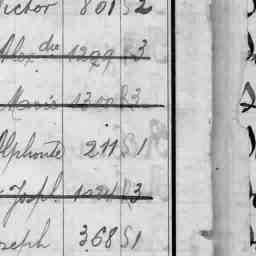 Victor 801 S2
Alexdre 1299 S3
Marie 1300 S3
Alphonse 211 S1
Joseph 3
Joseph 368 S1